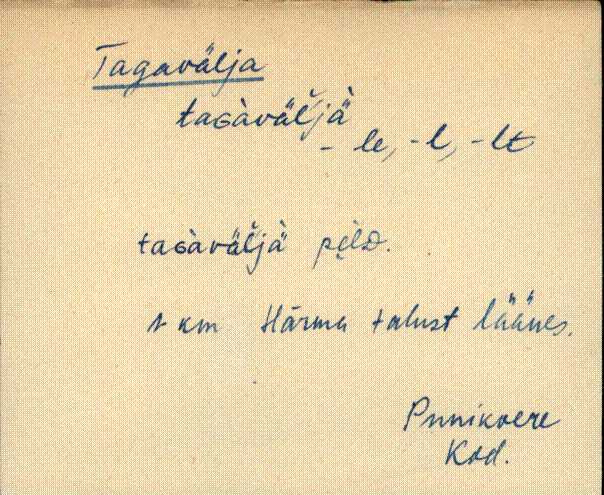 Tagavälja
taɢàväľjä̀
- le, -l, -lt
taɢàväľjä̀ põ̭lD.
1 km Härma talust läänes.
Punikvere
Kod.